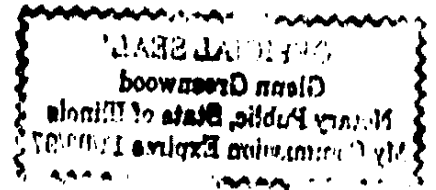 OFFICIAL SEAL
Glenn Greenwood
Notary Public, State of Illinois
My Commission Expires